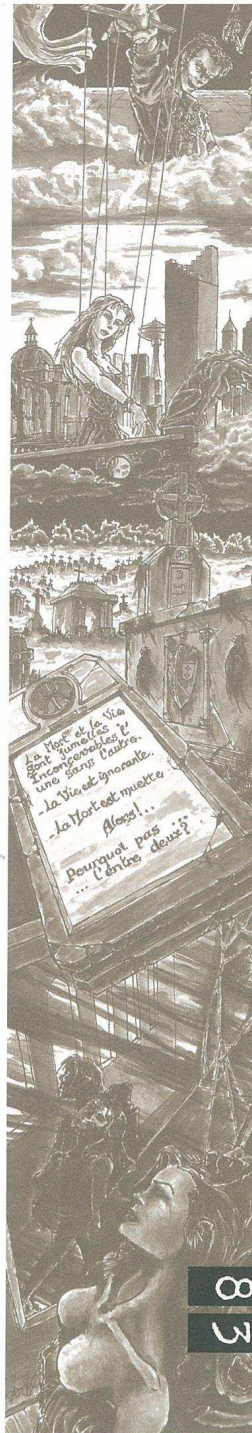 La Mort et la Vie
sont jumelles
Inconcevables l'
une sans l'autre.
La Vie est ignorante.
La Mort est muette
Alors!...
Pourquoi pas ...
... l'entre deux?
8
3